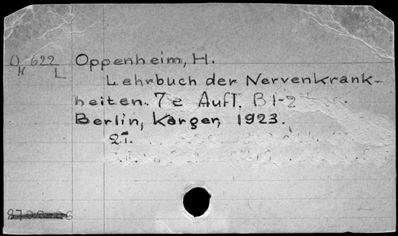 O 622 Oppenheim, H.
H L Lehrbuch der Nervenkrank-
heiten. 7e Aufl. B1-2
Berlin, Karger, 1923.
2T.